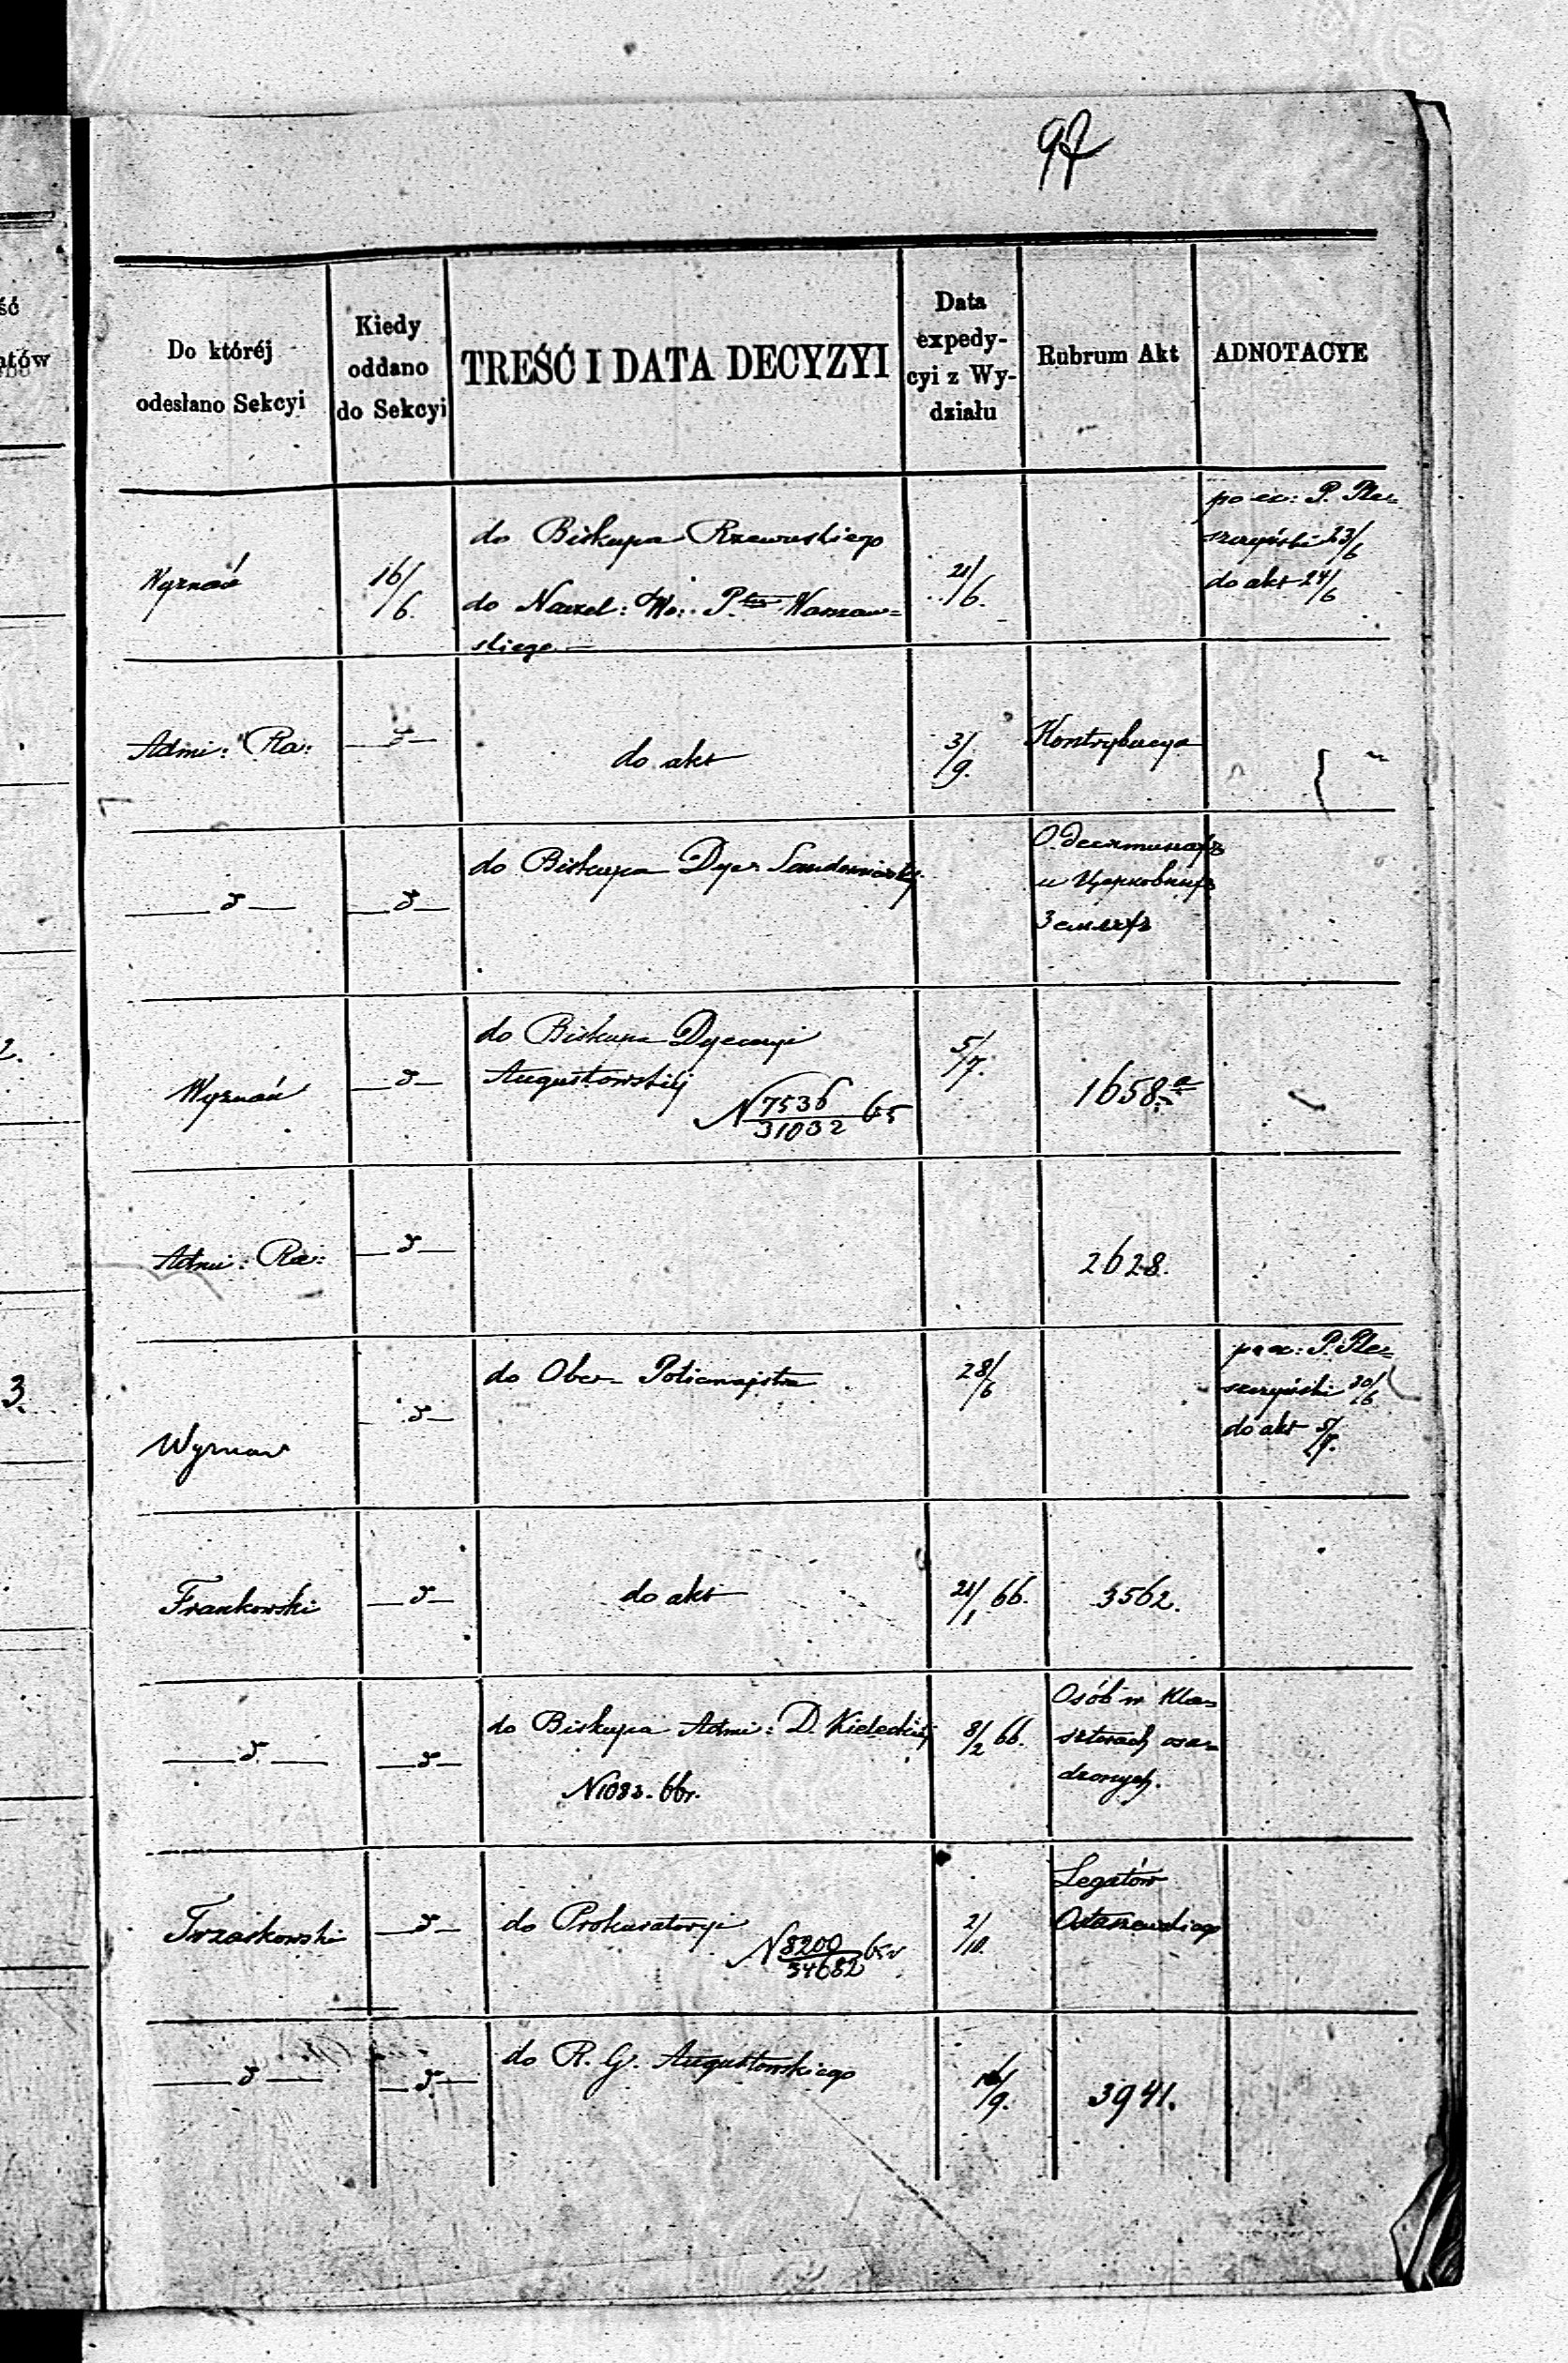 97
Do któréj
odesłano Sekcyi
Kiedy
oddano
do Sekcyi
TREŚĆ I DATA DECYZYI
Data
expedy-
cyi z Wy-
działu
Rubrum Akt
ADNOTACYE
Wyznań
16/6.
do Biskupa Rzewuskiego
do Naczel: Wo: P. Warszaw=
skiego
21/6.
po ex: P. Ple=
szczyński 23/6
do akt 24/6
Admi: Ra:
—d—
do akt
3/9.
Kontrybucya
—d—
—d—
do Biskupa Dye: Sandomirskiej
О десятинахъ
и Церковныхъ
Земляхъ
Wyznań
—d—
do Biskupa Dyecezyi
Augustowskiéj
N 7536/31032 65
5/7.
1658.a
Admi: Ra:
—d—
2628.
Wyznań
—d—
do Ober- Policmajstra
28/6
po ex: P. Ple=
szczyński 30/6
do akt 5/7.
Frankowski
—d—
do akt
21/1 66.
3562.
—d—
—d—
do Biskupa Admi: D. Kieleckiéj
N 1083. 66r.
8/2 66.
Osób w Kla=
sztorach osa=
dzonych.
Trzaskowski
—d—
do Prokuratoryi
N 8200/34682 65r
2/10.
Legatów
Ostaszewskiego
—d—
—d—
do R. G. Augustowskiego
/9.
3941.